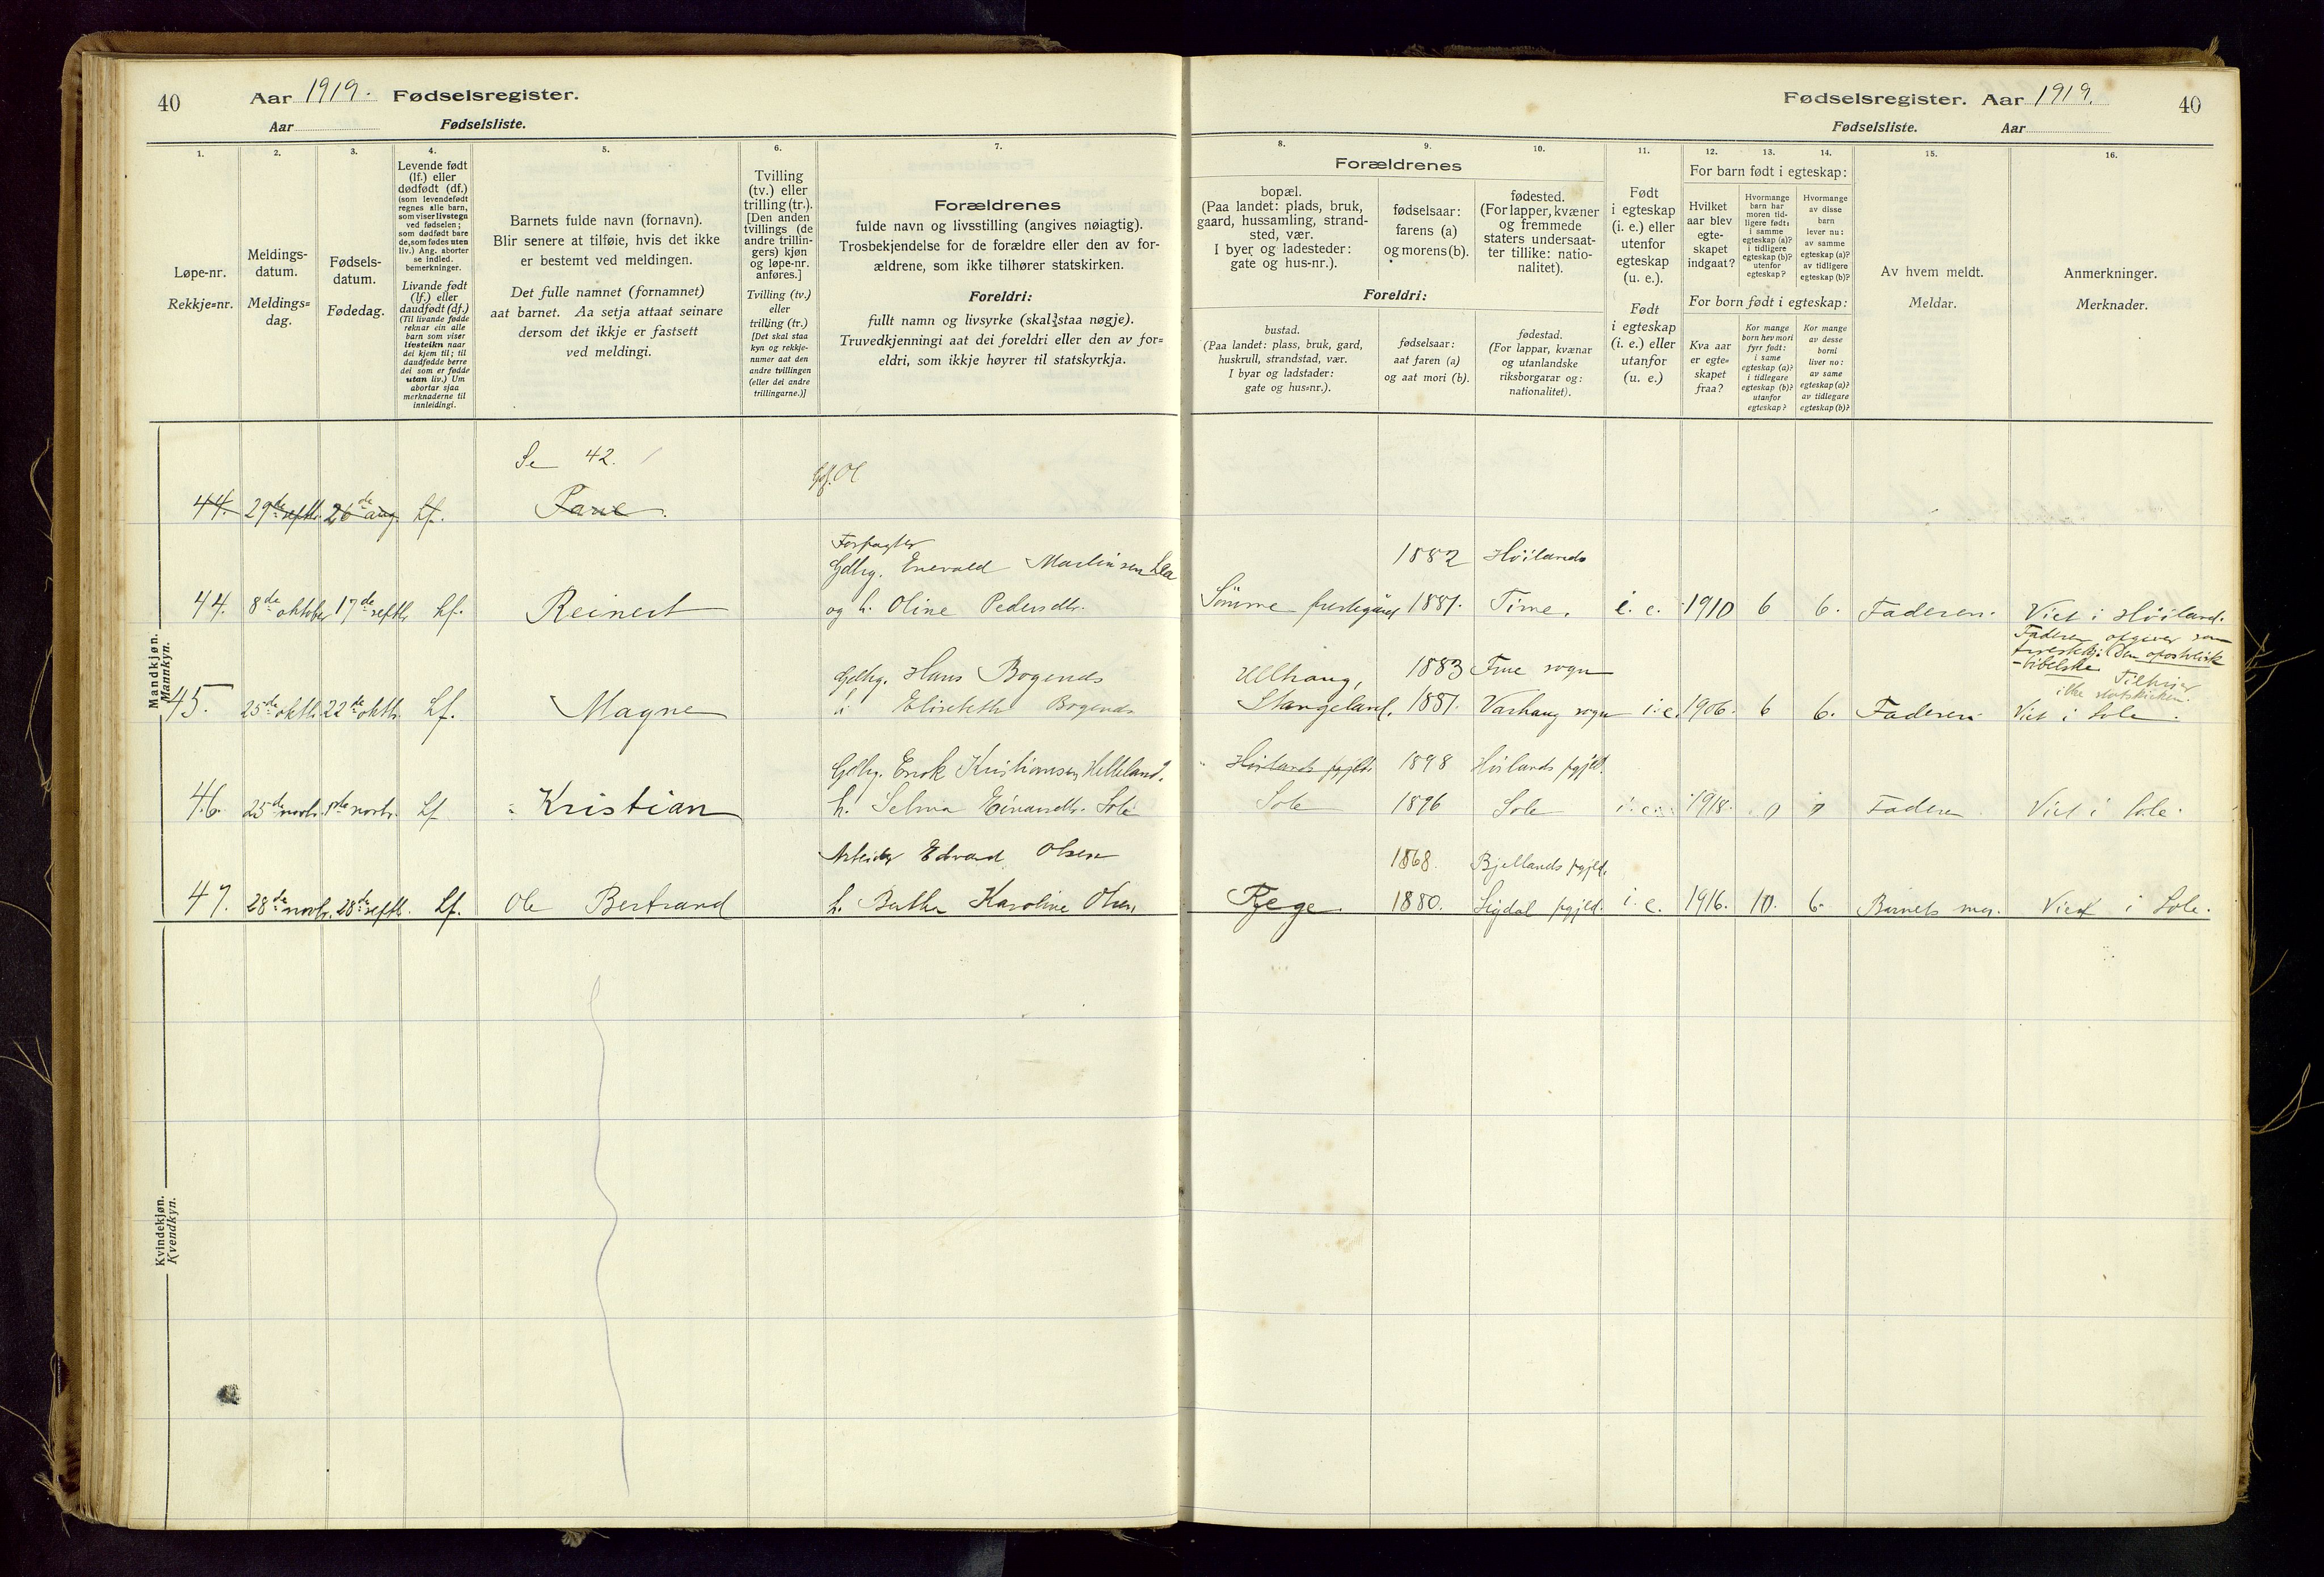 40
Aar 1919. Fødselsregister.
Aar Fødselsliste.
1.
2.
3.
4.
5.
6.
7.
Løpe-nr.
Rekkje=nr.
Meldings-
datum.
Meldings=
dag.
Fødsels-
datum.
Fødedag.
Levende født
(lf.) eller
dødfødt (df.)
(som levendefødt
regnes alle barn,
som viser livstegn
ved fødselen;
som dødfødt bare
de, som fødes uten
liv.) Ang. aborter
se indled.
bemerkninger.
Livande født
(lf.) eller
daudfødt (df.)
(Til livande fødde
reknar ein alle
barn som viser
livsteikn naar
dei kjem til; til
daudfødde berre
dei som er fødde
utan liv.) Um
abortar sjaa
merknaderne til
innleidingi.
Barnets fulde navn (fornavn).
Blir senere at tilføie, hvis det ikke
er bestemt ved meldingen.
Det fulle namnet (fornamnet)
aat barnet. Aa setja attaat seinare
dersom det ikkje er fastsett
ved meldingi.
Tvilling
(tv.) eller
trilling (tr.).
[Den anden
tvillings (de
andre trillin-
gers) kjøn
og løpe-nr.
anføres.]
Tvilling (tv.)
eller
trilling (tr.)
[Det skal staa
kyn og rekkje-
numer aat den
andre tvillingen
(eller dei andre
trillingarne.)]
Forældrenes
fulde navn og livsstilling (angives nøiagtig).
Trosbekjendelse for de forældre eller den av for-
ældrene, som ikke tilhører statskirken.
Foreldri:
fullt namn og livsyrke (skal staa nøgje).
Truvedkjenningi aat dei foreldri eller den av for=
eldri, som ikkje høyrer til statskyrkja.
Mandkjøn.
Mannkyn.
Se 42.
44. 29de septbr. 26de aug. Lf.
Forpagter
Gdbrg. Enevald Martinsen
44. 8de oktober 17de septbr Lf. Reinert og h. Oline Pedersdtr.
Gdbrg. Hans Bogends
45. 25de oktbr. 22de oktbr. Lf. Magne h. Elisabeth Bogends
Gdbrg. Enok Kristiansen Helleland.
46. 25de novbr. novbr. Lf Kristian h. Selma Einarsdtr. Sole
Arbeider Edvard Olsen
47. 28de novbr. 28de septbr. Lf. Ole Bertrand h. Bertha Karoline Olsen
Kvindekjøn.
Kvendkyn.
Fødselsregister. Aar 1919. 40
Fødselsliste. Aar
8.
9.
10.
11.
12.
13.
14.
15.
16.
Forældrenes
bopæl.
(Paa landet: plads, bruk,
gaard, hussamling, strand-
sted, vær.
I byer og ladesteder:
gate og hus-nr.).
fødselsaar:
farens (a)
og morens (b).
fødested.
(For lapper, kvæner
og fremmede
staters undersaat-
ter tillike: natio-
nalitet).
Foreldri:
bustad.
(Paa landet: plass, bruk, gard,
huskrull, strandstad, vær.
I byar og ladstader:
gate og hus=nr.).
fødselsaar:
aat faren (a)
og aat mori (b).
fødestad.
(For lappar, kvænar
og utanlandske
riksborgarar og:
nationalitet).
Født
i egteskap
(i. e.) eller
utenfor
egteskap
(u. e.).
Født
i egteskap
(i. e.) eller
utanfor
(u. e.)
For barn født i egteskap:
Hvilket
aar blev
egte-
skapet
indgaat?
Hvormange
barn har
moren tid-
ligere født:
i samme
egteskap (a)?
i tidligere
egteskap (b)?
utenfor
egteskap?
Hvormange
av disse
barn
lever nu:
av samme
egteskap (a)?
av tidligere
egteskap (b)?
For born født i egteskap:
Kva aar
er egte=
skapet
fraa?
Kor mange
born hev mori
fyrr født:
i same
egteskap (a)?
i tidlegare
egteskap (b)?
utanfor
egteskap?
Kor mange
av desse
borni
liver no:
av same
egteskap (a)?
av tidlegare
egteskap (b)?
Av hvem meldt.
Meldar.
Anmerkninger.
Merknader.
1882 Høilands
Sømme prestegaard 1881. Time. i. e. 1910 6 6. Faderen. Viet i Høiland.
Faderen opgiver som
Ullhaug, 1883 Frue sogn
Stangeland. 1881. Varhaug sogn i. e. 1906. 6 6. Faderen Viet i Sole.
Tilhører
ikke statskirken.
Høilands pgjld. 1898 Høilands pgjld.
Sole 1896 Sole i. e. 1918. 0 0 Faderen Viet i Sole.
1868. Bjellands pgjld.
Rege 1880. Sigdal pgjld. i. e. 1916. 10. 6. Barnets mor. Viet i Sole.